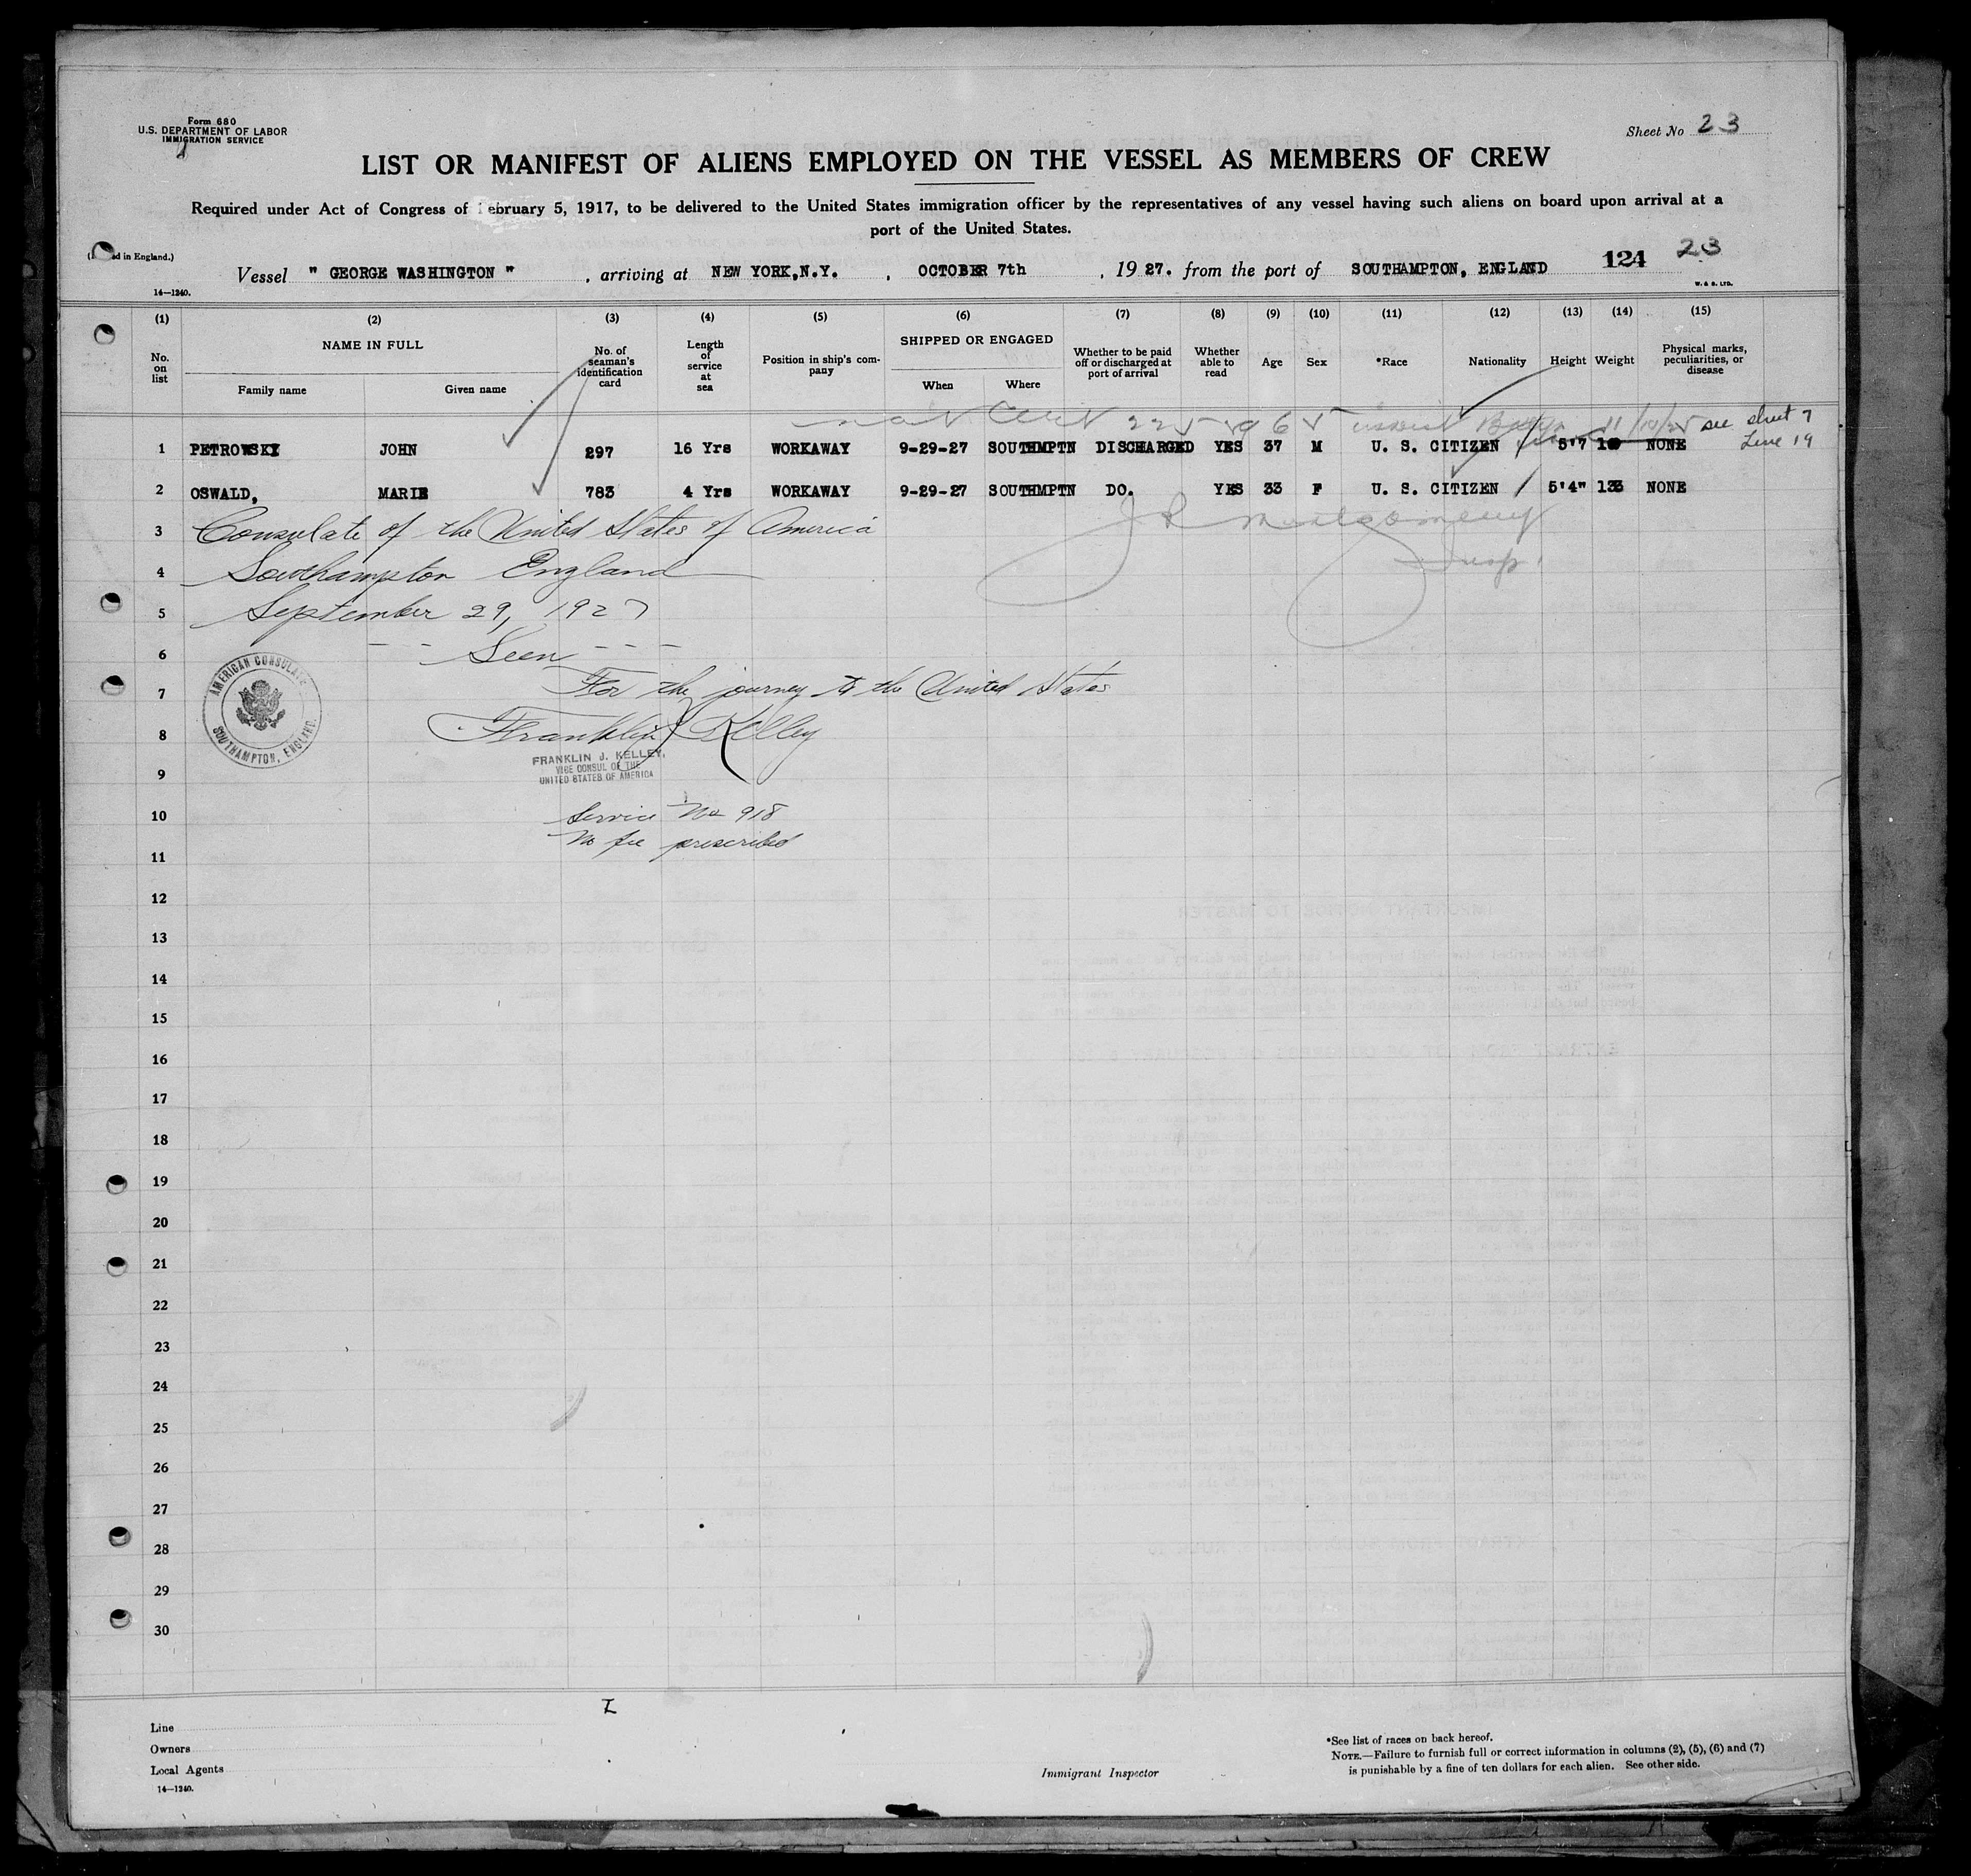 Form 680
U.S. DEPARTMENT OF LABOR
IMMIGRATION SERVICE
Sheet No 23
LIST OR MANIFEST OF ALIENS EMPLOYED ON THE VESSEL AS MEMBERS OF CREW
Required under Act of Congress of February 5, 1917, to be delivered to the United States immigration officer by the representatives of any vessel having such aliens on board upon arrival at a
port of the United States.
in England.)
Vessel " GEORGE WASHINGTON " , arriving at NEW YORK,N.Y. , OCTOBER 7th , 19 27. from the port of SOUTHAMPTON, ENGLAND 124 23
14—1240. W. & S. LTD.
(1) (2) (3) (4) (5) (6) (7) (8) (9) (10) (11) (12) (13) (14) (15)
No. on list NAME IN FULL Family name Given name No. of seaman's identification card Length of service at sea Position in ship's company SHIPPED OR ENGAGED When Where Whether to be paid off or discharged at port of arrival Whether able to read Age Sex *Race Nationality Height Weight Physical marks, peculiarities, or disease
see sheet 7
Line 19
1 PETROWSKI JOHN 297 16 Yrs WORKAWAY 9-29-27 SOUTHMPTN DISCHARGED YES 37 M U. S. CITIZEN 5'7 NONE
2 OSWALD, MARIE 783 4 Yrs WORKAWAY 9-29-27 SOUTHMPTN DO. YES 33 F U. S. CITIZEN 5'4" 133 NONE
J R Montgomery
Insp.
3 Consulate of the United States of America
4 Southampton England
5 September 29, 1927
6 - - Seen - - -
7 For the journey to the United States
AMERICAN CONSULATE
SOUTHAMPTON, ENGLAND.
8 Franklin J Kelley
FRANKLIN J. KELLEY,
VICE CONSUL OF THE
UNITED STATES OF AMERICA
9
10 Service No 918
No fee prescribed
11
12
13
14
15
16
17
18
19
20
21
22
23
24
25
26
27
28
29
30
Line
Owners
Local Agents
14—1240.
Immigrant Inspector
*See list of races on back hereof.
NOTE.—Failure to furnish full or correct information in columns (2), (5), (6) and (7)
is punishable by a fine of ten dollars for each alien. See other side.